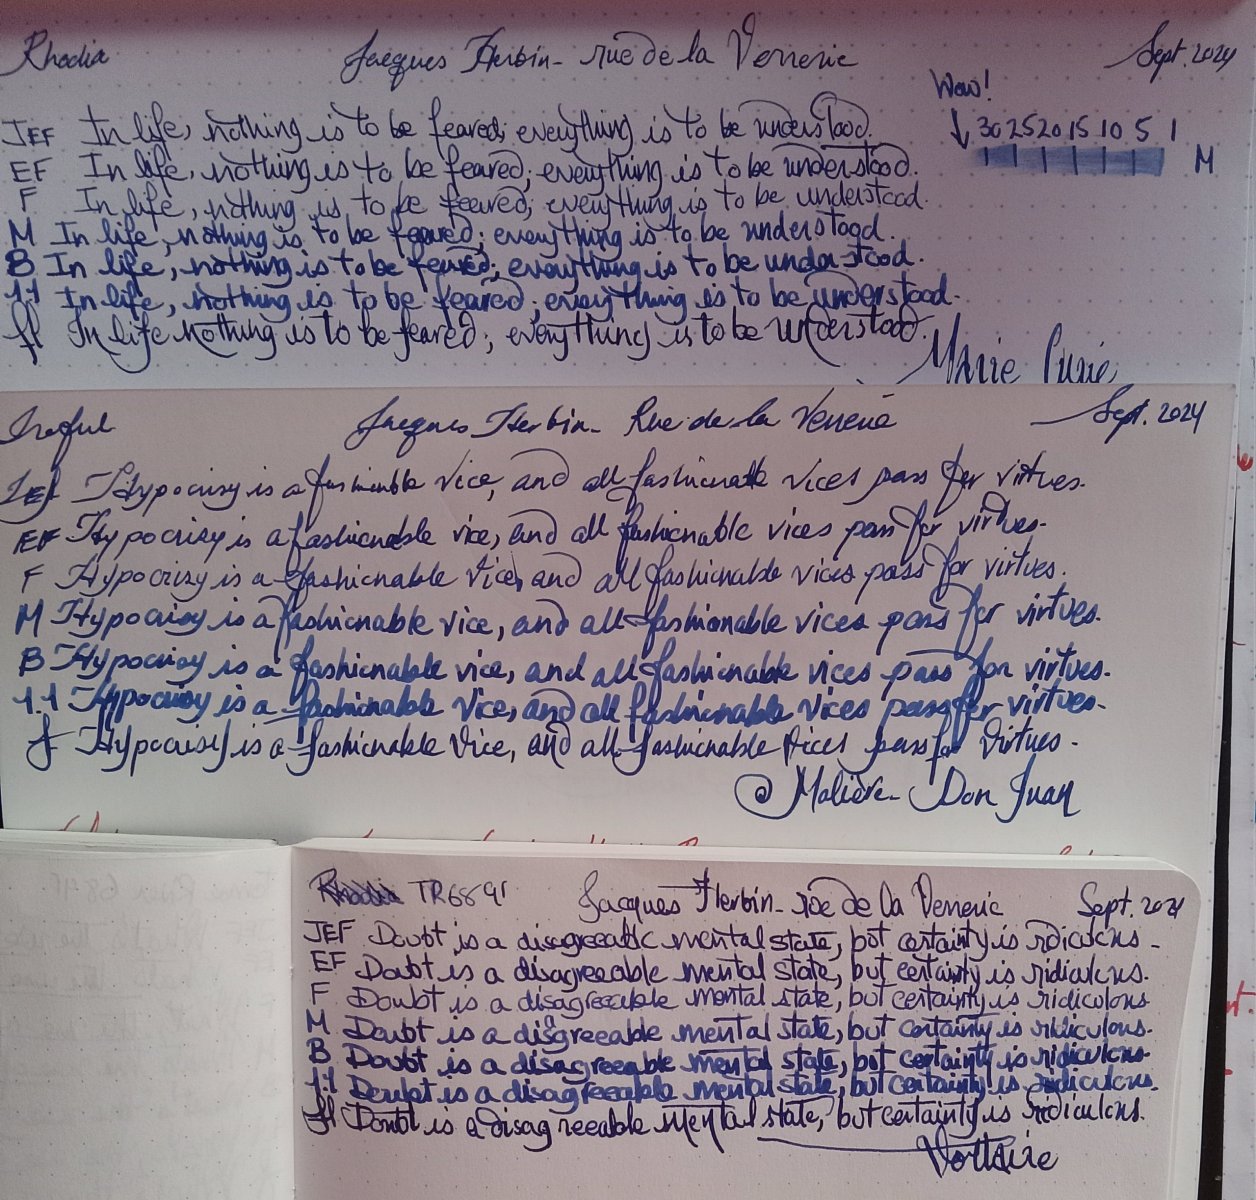 Rhodia Jacques Herbin - rue de la Verrerie Sept. 2024
Wow!
↓ 30 25 20 15 10 5 1
M
JEF In life, nothing is to be feared; everything is to be understood.
EF In life, nothing is to be feared; everything is to be understood.
F In life, nothing is to be feared; everything is to be understood.
M In life, nothing is to be feared; everything is to be understood.
B In life, nothing is to be feared; everything is to be understood.
1.1 In life, nothing is to be feared; everything is to be understood.
ff In life nothing is to be feared; everything is to be understood.
Marie Curie
Jacques Herbin - Rue de la Verrerie Sept. 2024
JEF Hypocrisy is a fashionable vice, and all fashionable vices pass for virtues.
EF Hypocrisy is a fashionable vice, and all fashionable vices pass for virtues.
F Hypocrisy is a fashionable vice, and all fashionable vices pass for virtues.
M Hypocrisy is a fashionable vice, and all fashionable vices pass for virtues.
B Hypocrisy is a fashionable vice, and all fashionable vices pass for virtues.
1.1 Hypocrisy is a fashionable vice, and all fashionable vices pass for virtues.
f Hypocrisy is a fashionable vice, and all fashionable vices pass for virtues.
Molière - Don Juan
Rhodia TR6891 Jacques Herbin - rue de la Verrerie Sept. 2024
JEF Doubt is a disagreeable mental state, but certainty is ridiculous.
EF Doubt is a disagreeable mental state, but certainty is ridiculous.
F Doubt is a disagreeable mental state, but certainty is ridiculous
M Doubt is a disagreeable mental state, but certainty is ridiculous.
B Doubt is a disagreeable mental state, but certainty is ridiculous.
1.1 Doubt is a disagreeable mental state, but certainty is ridiculous.
ff Doubt is a disagreeable mental state, but certainty is ridiculous.
Voltaire